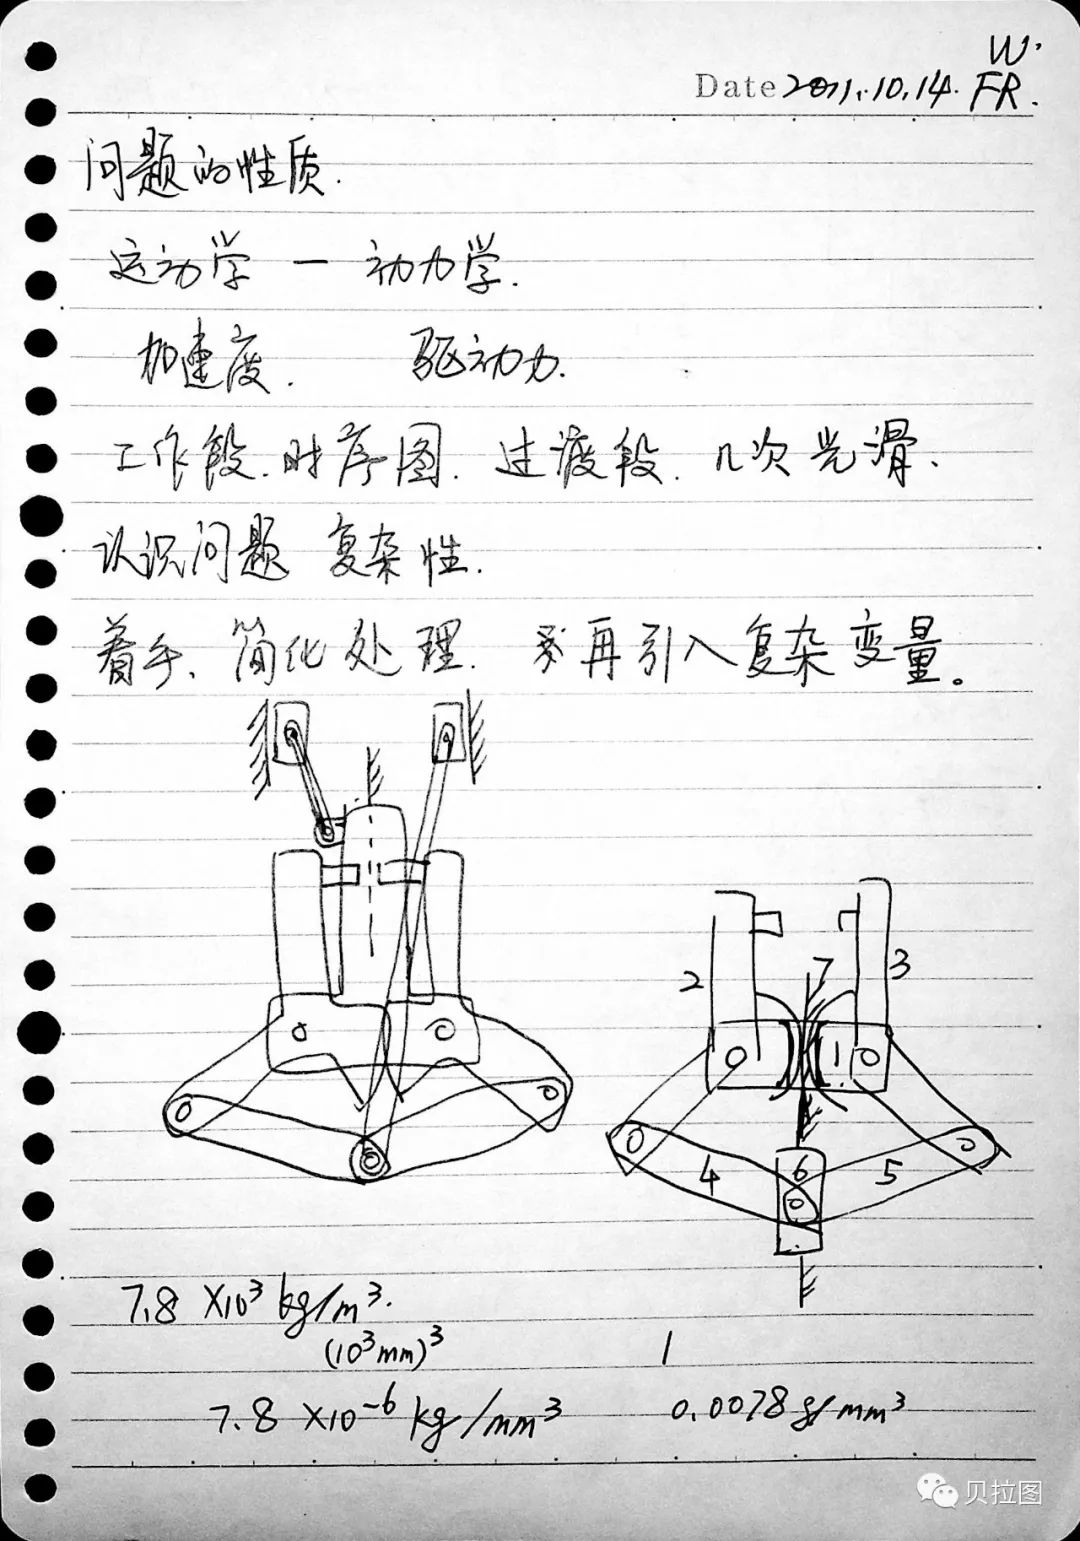 W.
Date 2021.10.14. FR.
问题的性质.
运动学 — 动力学.
加速度. 驱动力.
工作段.时序图.过渡段.几次光滑.
认识问题 复杂性.
着手、简化处理. 再引入复杂变量。
2 7 3
1
4 6 5
7.8 X10³ kg/m³.
(10³mm)³ 1
7.8 X10⁻⁶ kg/mm³ 0.0078g/mm³
贝拉图